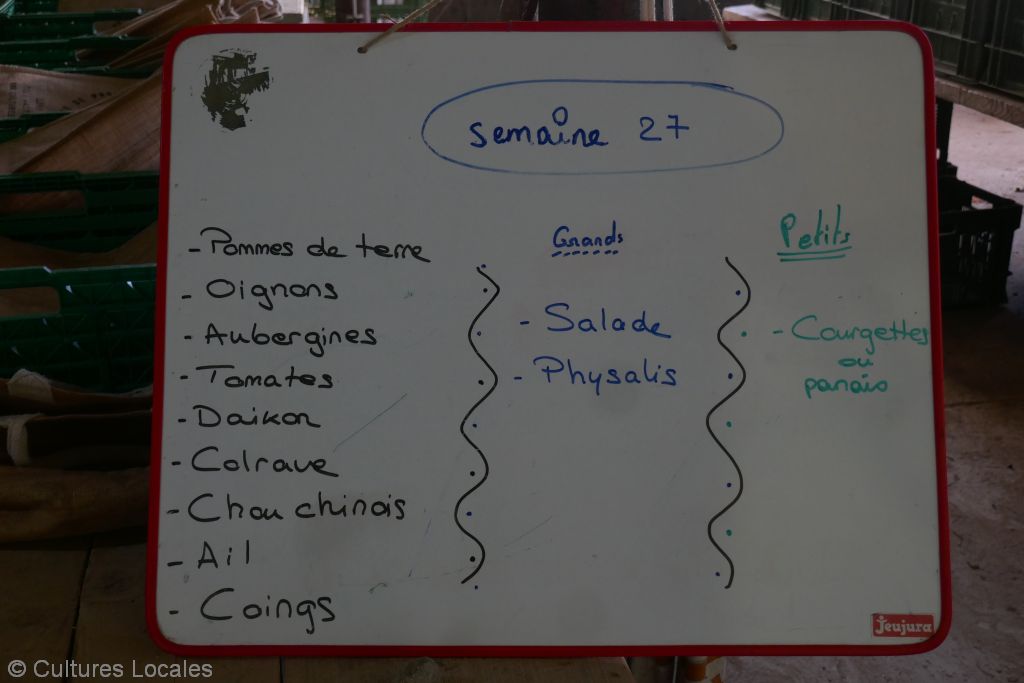 semaine 27
- Pommes de terre
- Oignons
- Aubergines
- Tomates
- Daikon
- Colrave
- Chou chinois
- Ail
- Coings
Grands
- Salade
- Physalis
Petits
- Courgettes
ou
panais
Jeujura
© Cultures Locales